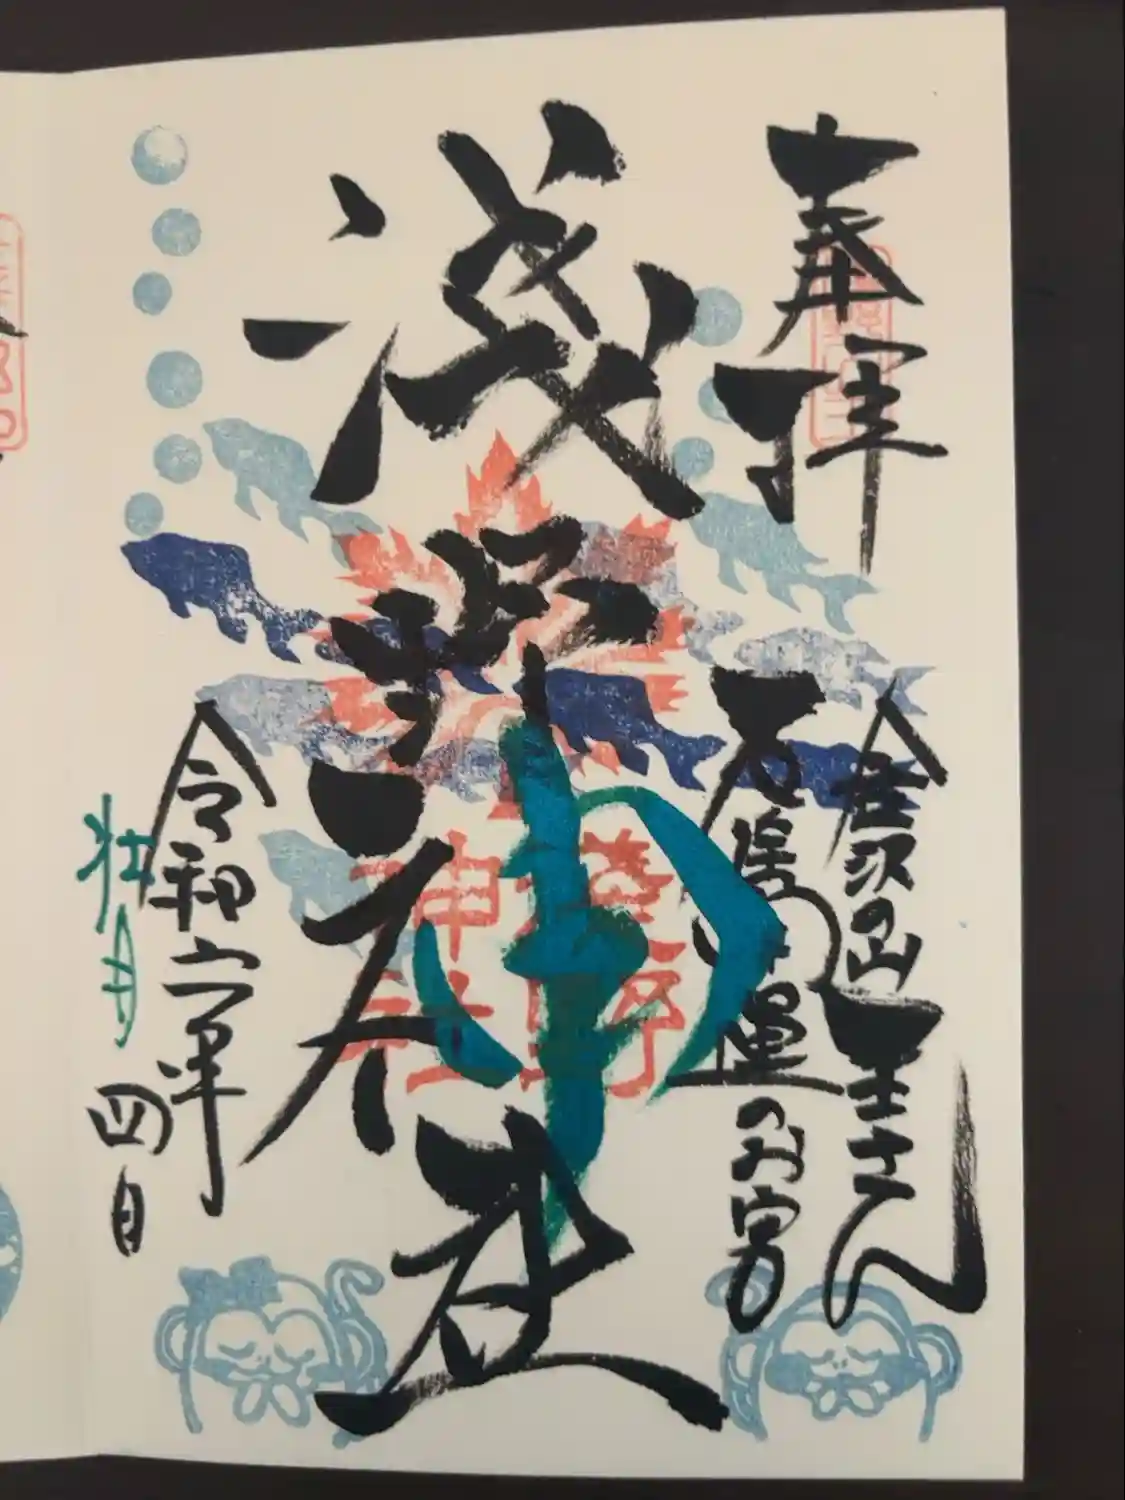 奉拝
金沢の山王さん
石浦 運のお宮
浅野神社
浅野
神社
令和六年
牡月
四日